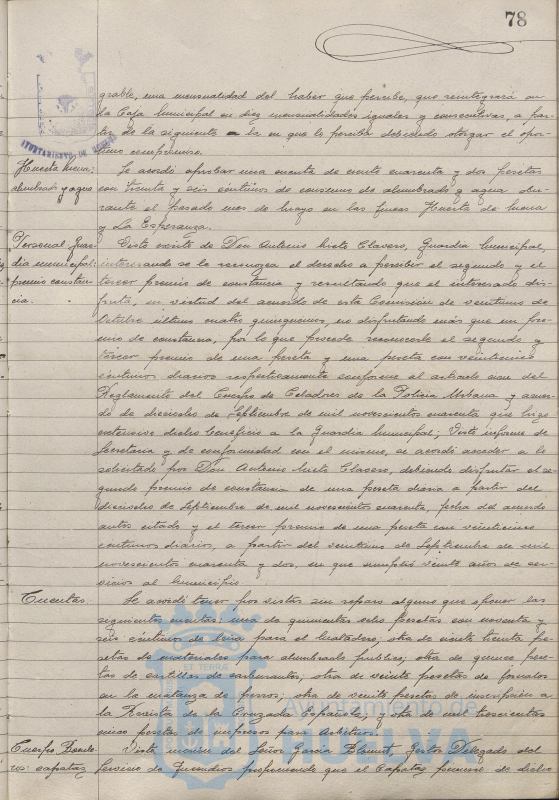 78
grable, una mensualidad del haber que percibe, que reintegrará en
la Caja Municipal en diez mensualidades iguales y consecutivas, a par-
tir de la siguiente a la en que lo perciba debiendo otorgar el opor-
tuno compromiso.
AYUNTAMIENTO DE HUELVA
Huerta Mena: alumbrado y agua
Se acordó aprobar una cuenta de ciento cuarenta y dos pesetas
con treinta y seis céntimos de consumo de alumbrado y agua du-
rante el pasado mes de Mayo en las fincas Huerta de Mena
y La Esperanza.
Personal Guar-
dia municipal:
premio constan-
cia.
Visto escrito de Don Antonio Nieto Clavero, Guardia Municipal,
interesando se le reconozca el derecho a percibir el segundo y el
tercer premio de constancia y resultando que el interesado dis-
fruta, en virtud del acuerdo de esta Comisión de veintiuno de
Octubre último cuatro quinquenios, no disfrutando más que un pre-
mio de constancia, por lo que procede reconocerle el segundo y
tercer premio de una peseta y una peseta con veinticinco
céntimos diarios respectivamente conforme al artículo once del
Reglamento del Cuerpo de Celadores de la Policía Urbana y acuer-
do de dieciseis de Septiembre de mil novecientos cuarenta que hizo
extensivo dicho beneficio a la Guardia Municipal; Visto informe de
Secretaría y de conformidad con el mismo, se acordó acceder a lo
solicitado por Don Antonio Nieto Clavero, debiendo disfrutar el se-
gundo premio de constancia de una peseta diaria a partir del
de Septiembre de mil novecientos cuarenta, fecha del acuerdo
antes citado y el tercer premio de una peseta con veinticinco
céntimos diarios, a partir del veintiuno de Septiembre de mil
novecientos cuarenta y dos, en que cumplió veinte años de ser-
vicios al Municipio.
Cuentas
Se acordó tener por vistas sin reparo alguno que oponer las
siguientes cuentas: una de quinientas ocho pesetas con noventa y
seis céntimos de para el Matadero; otra de ciento treinta pe-
setas de materiales para alumbrado público; otra de quince pese-
tas de cartillas de carburantes; otra de veinte pesetas de
en la matanza de perros; otra de veinte pesetas de inscripción a
la Revista de la Cruzada Española; y otra de mil trescientas
cinco pesetas de impresos para Arbitrios.
Cuerpo Bombe-
ros: capataz
Vista moción del Señor García Gestor Delegado del
Servicio de Incendios proponiendo que el Capataz primero de dicho
Ayuntamiento de
HUELVA